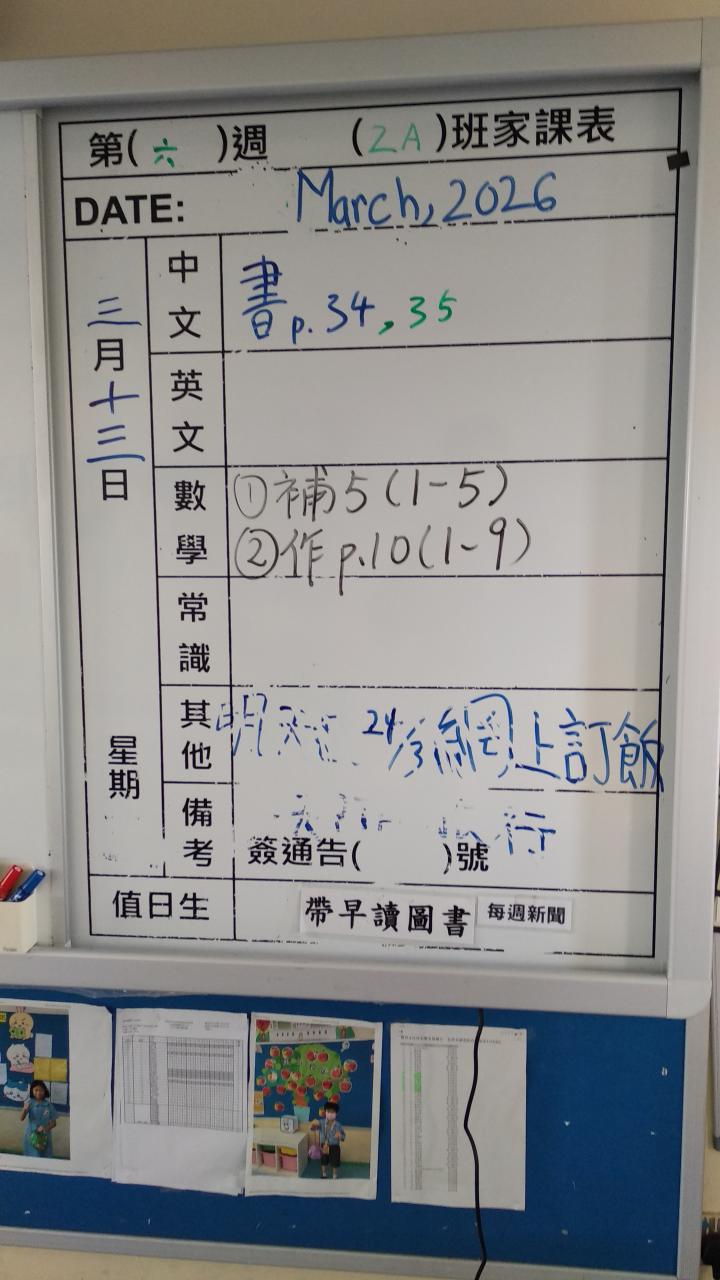 第(六)週 (2A)班家課表
DATE: March, 2026
三月十三日
星期
中文 書p.34,35
英文
數學 ①補5(1-5)
②作p.10(1-9)
常識
其他 24/3網上訂飯
備考 行
簽通告( )號
值日生 帶早讀圖書 每週新聞